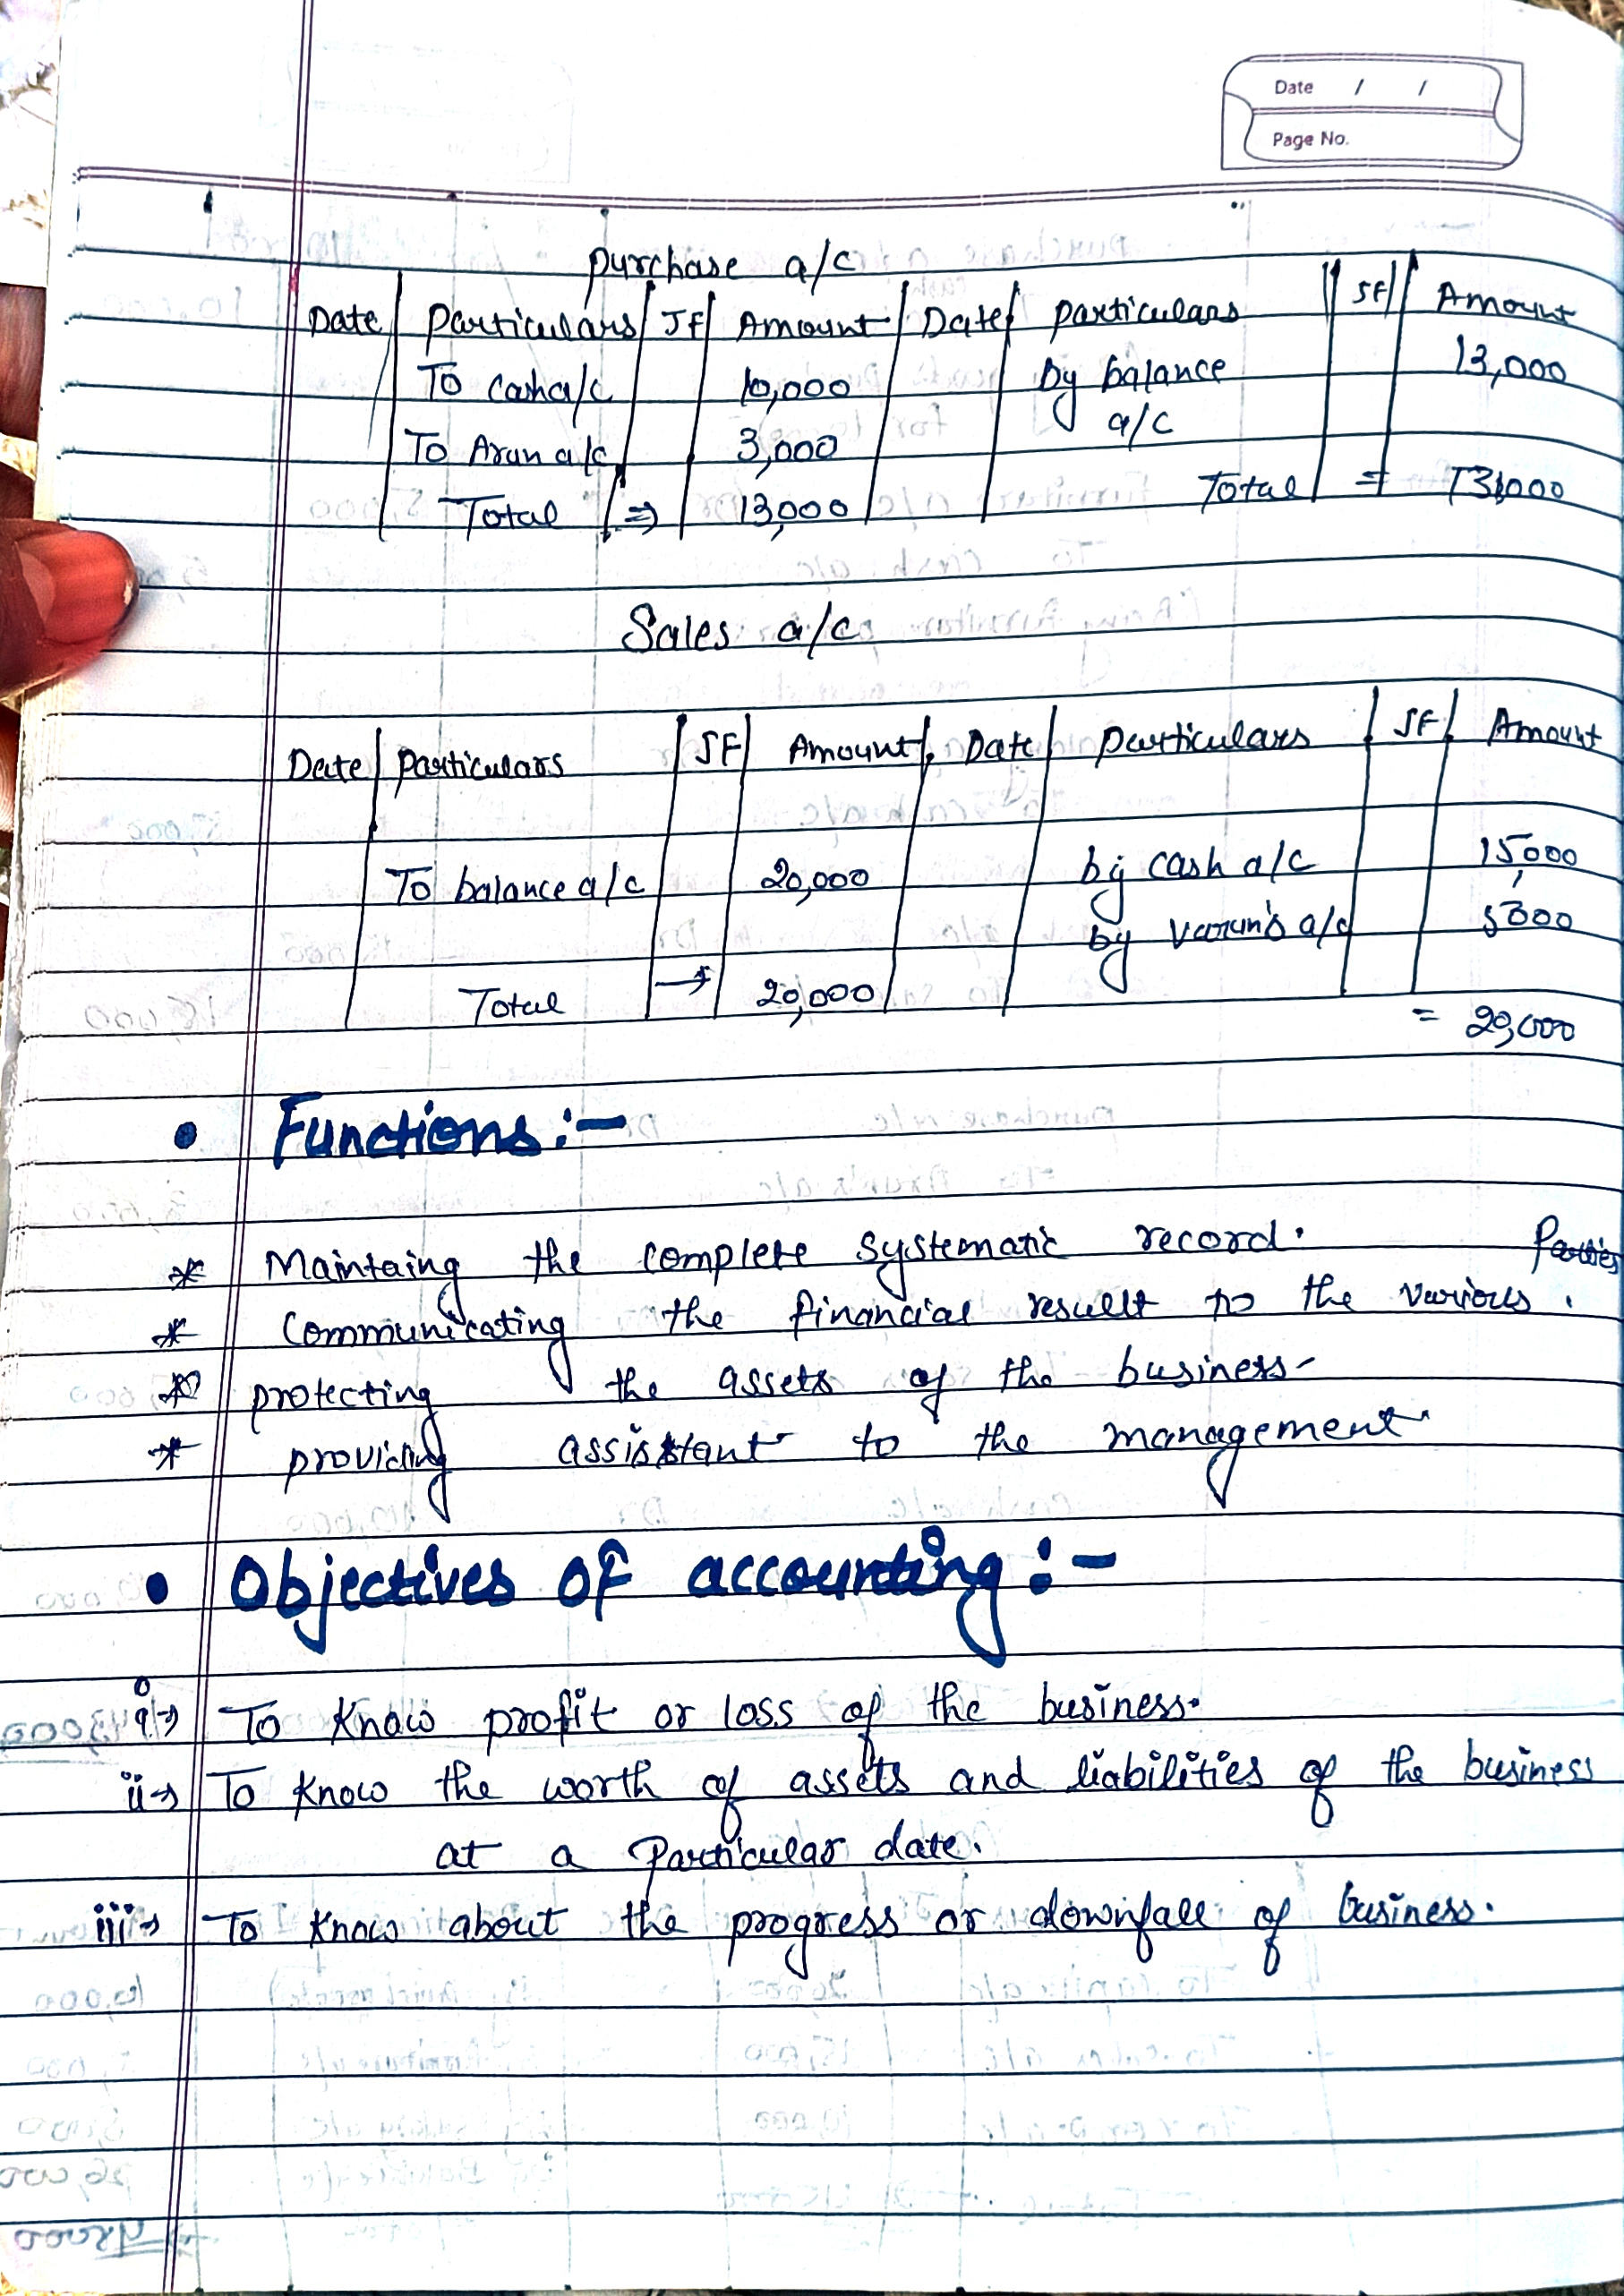 Date / /
Page No.
purchase a/c
Date Particulars JF Amount Date particulars JF Amount
To cash a/c 10,000 by balance 13,000
a/c
To Arun a/c 3,000
Total ⇒ 13,000 Total = 13,000
Sales a/c
Date particulars JF Amount Date particulars JF Amount
To balance a/c 20,000 by cash a/c 15,000
by varun's a/c 5000
Total → 20,000
= 20,000
• Functions:-
* Maintaing the complete systematic record. Parties
* Communicating the financial result to the various.
* protecting the assets of the business
* providing assisstant to the management
• Objectives of accounting:-
i→ To Know profit or loss of the business.
ii→ To Know the worth of assets and liabilities of the business
at a Particular date.
iii→ To Know about the progress or downfall of business.